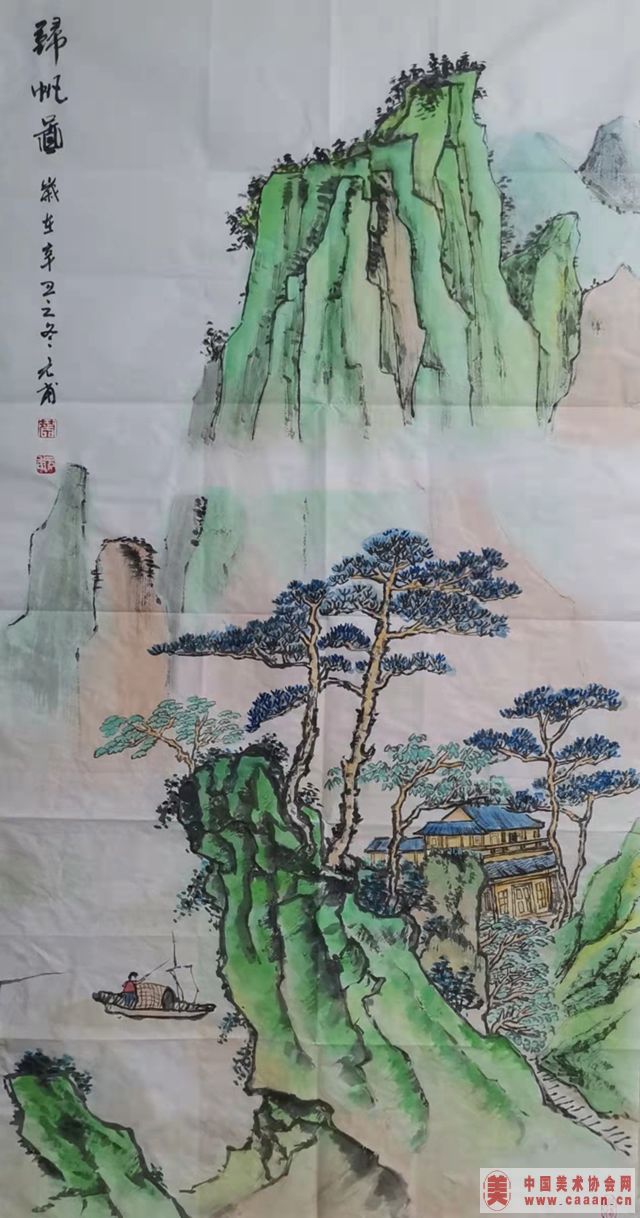 歸帆圖
歲在辛丑之冬元甫
中国美术协会网
www.caaan.cn